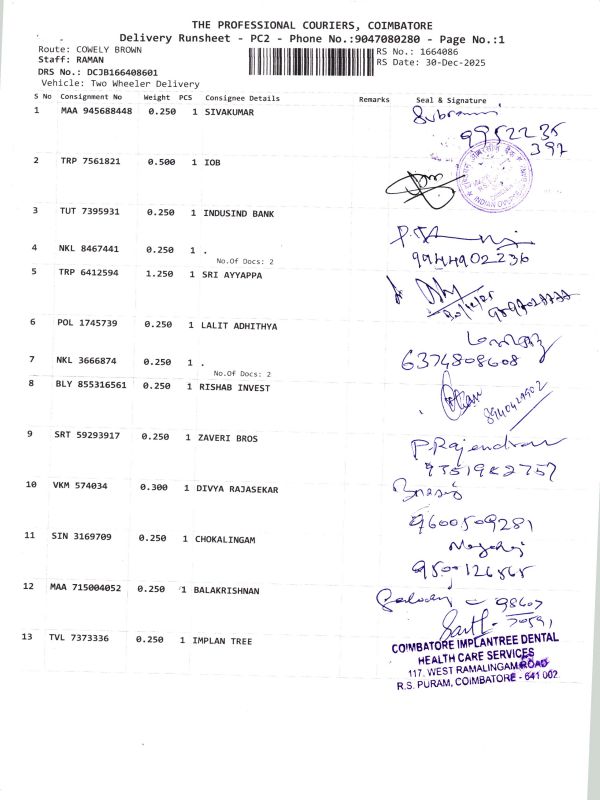 THE PROFESSIONAL COURIERS, COIMBATORE
Delivery Runsheet - PC2 - Phone No.:9047080280 - Page No.:1
Route: COWELY BROWN RS No.: 1664086
Staff: RAMAN RS Date: 30-Dec-2025
DRS No.: DCJB166408601
Vehicle: Two Wheeler Delivery
S No Consignment No Weight PCS Consignee Details Remarks Seal & Signature
1 MAA 945688448 0.250 1 SIVAKUMAR
9952235
397
2 TRP 7561821 0.500 1 IOB
3 TUT 7395931 0.250 1 INDUSIND BANK
4 NKL 8467441 0.250 1 .
No.Of Docs: 2
9944902236
5 TRP 6412594 1.250 1 SRI AYYAPPA
30/12/25
6 POL 1745739 0.250 1 LALIT ADHITHYA
7 NKL 3666874 0.250 1 .
No.Of Docs: 2
6374808608
8 BLY 855316561 0.250 1 RISHAB INVEST
9 SRT 59293917 0.250 1 ZAVERI BROS
P.Rajendran
10 VKM 574034 0.300 1 DIVYA RAJASEKAR
9600509281
11 SIN 3169709 0.250 1 CHOKALINGAM
9500126565
12 MAA 715004052 0.250 1 BALAKRISHNAN
98607
70591
13 TVL 7373336 0.250 1 IMPLAN TREE
COIMBATORE IMPLANTREE DENTAL
HEALTH CARE SERVICES
117, WEST RAMALINGAM ROAD
R.S. PURAM, COIMBATORE - 641 002